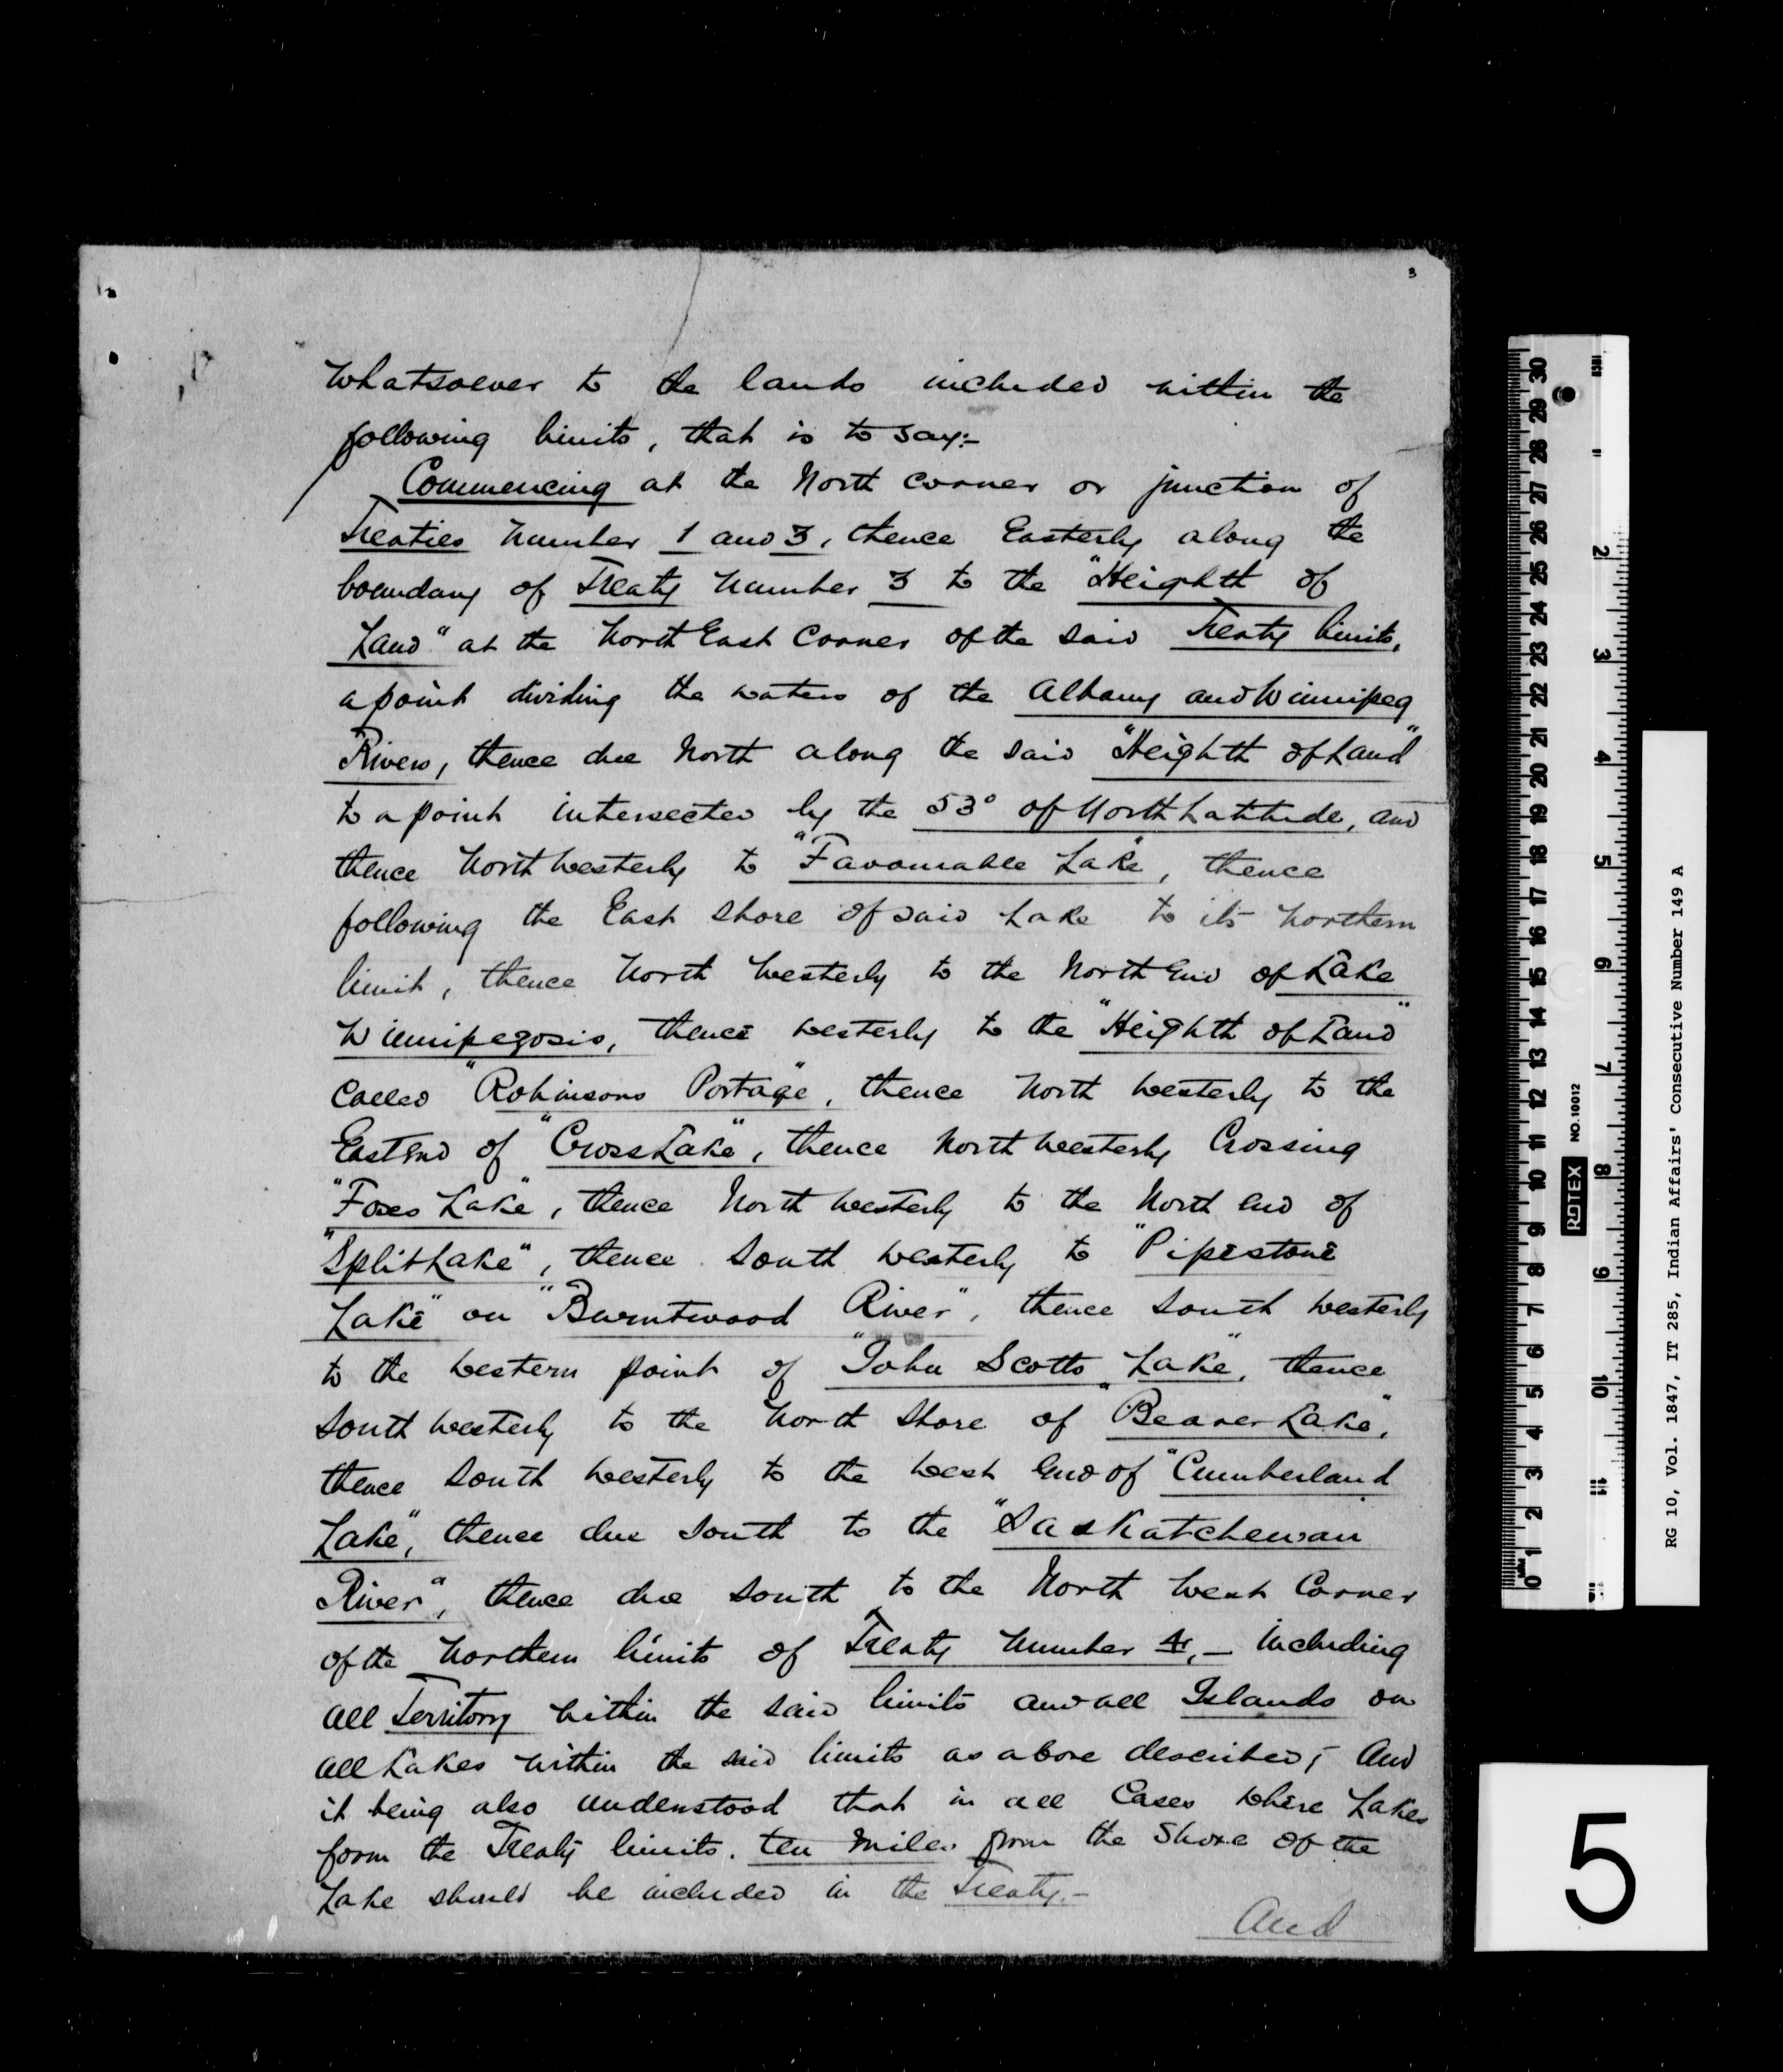 3
Whatsoever to the lands included within the
following limits, that is to say:-
Commencing at the North corner or junction of
Treaties Number 1 and 3, thence Easterly along the
boundary of Treaty Number 3 to the "Heighth of
Land" at the North East Corner of the said Treaty limits,
a point dividing the waters of the Albany and Winnipeg
Rivers, thence due North along the said "Heighth of Land"
to a point intersected by the 53° of North Latitude, and
thence North Westerly to "Favourable Lake", thence
following the East shore of said Lake to its Northern
limit, thence North Westerly to the North End of Lake
Winnipegosis, thence Westerly to the "Heighth of Land"
Called "Robinsons Portage", thence North Westerly to the
East End of "Cross Lake", thence North Westerly Crossing
"Foxes Lake", thence North Westerly to the North End of
"Split Lake", thence South Westerly to "Pipestone
Lake" on "Burntwood River", thence South Westerly
to the Western point of "John Scotts Lake", thence
South Westerly to the North Shore of "Beaver Lake",
thence South Westerly to the West End of "Cumberland
Lake", thence due South to the "Saskatchewan
River", thence due South to the North West Corner
of the Northern limits of Treaty Number 4,- including
all Territory within the said limits and all Islands on
all Lakes within the said limits as above described; And
it being also understood that in all Cases where Lakes
form the Treaty limits, ten miles from the Shore of the
Lake should be included in the Treaty.-
And
30 29 28 27 26 25 24 23 22 21 20 19 18 17 16 15 14 13 12 11 10 9 8 7 6 5 4 3 2 1 0
2 3 4 5 6 7 8 9 10 11
ROTEX NO.10012
RG 10, Vol. 1847, IT 285, Indian Affairs' Consecutive Number 149 A
5